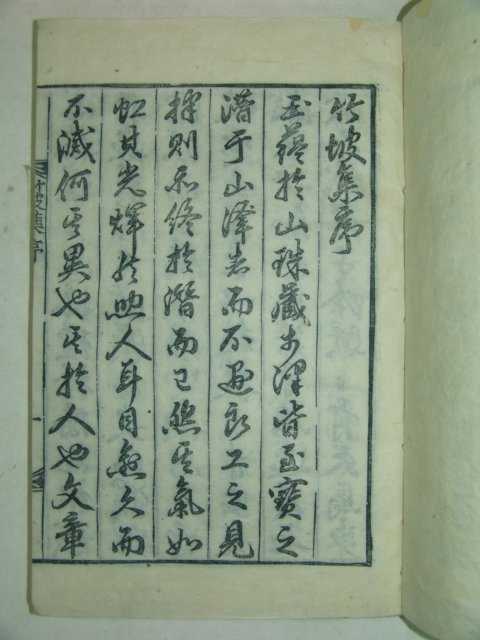 竹坡集序
玉蘊於山珠藏於澤皆至寶之
潛于山澤者而不遇良工之見
採則亦終於潛而已然其氣如
虹其光輝於照人耳目愈久而
不滅何其異也其於人也文章
竹坡集序